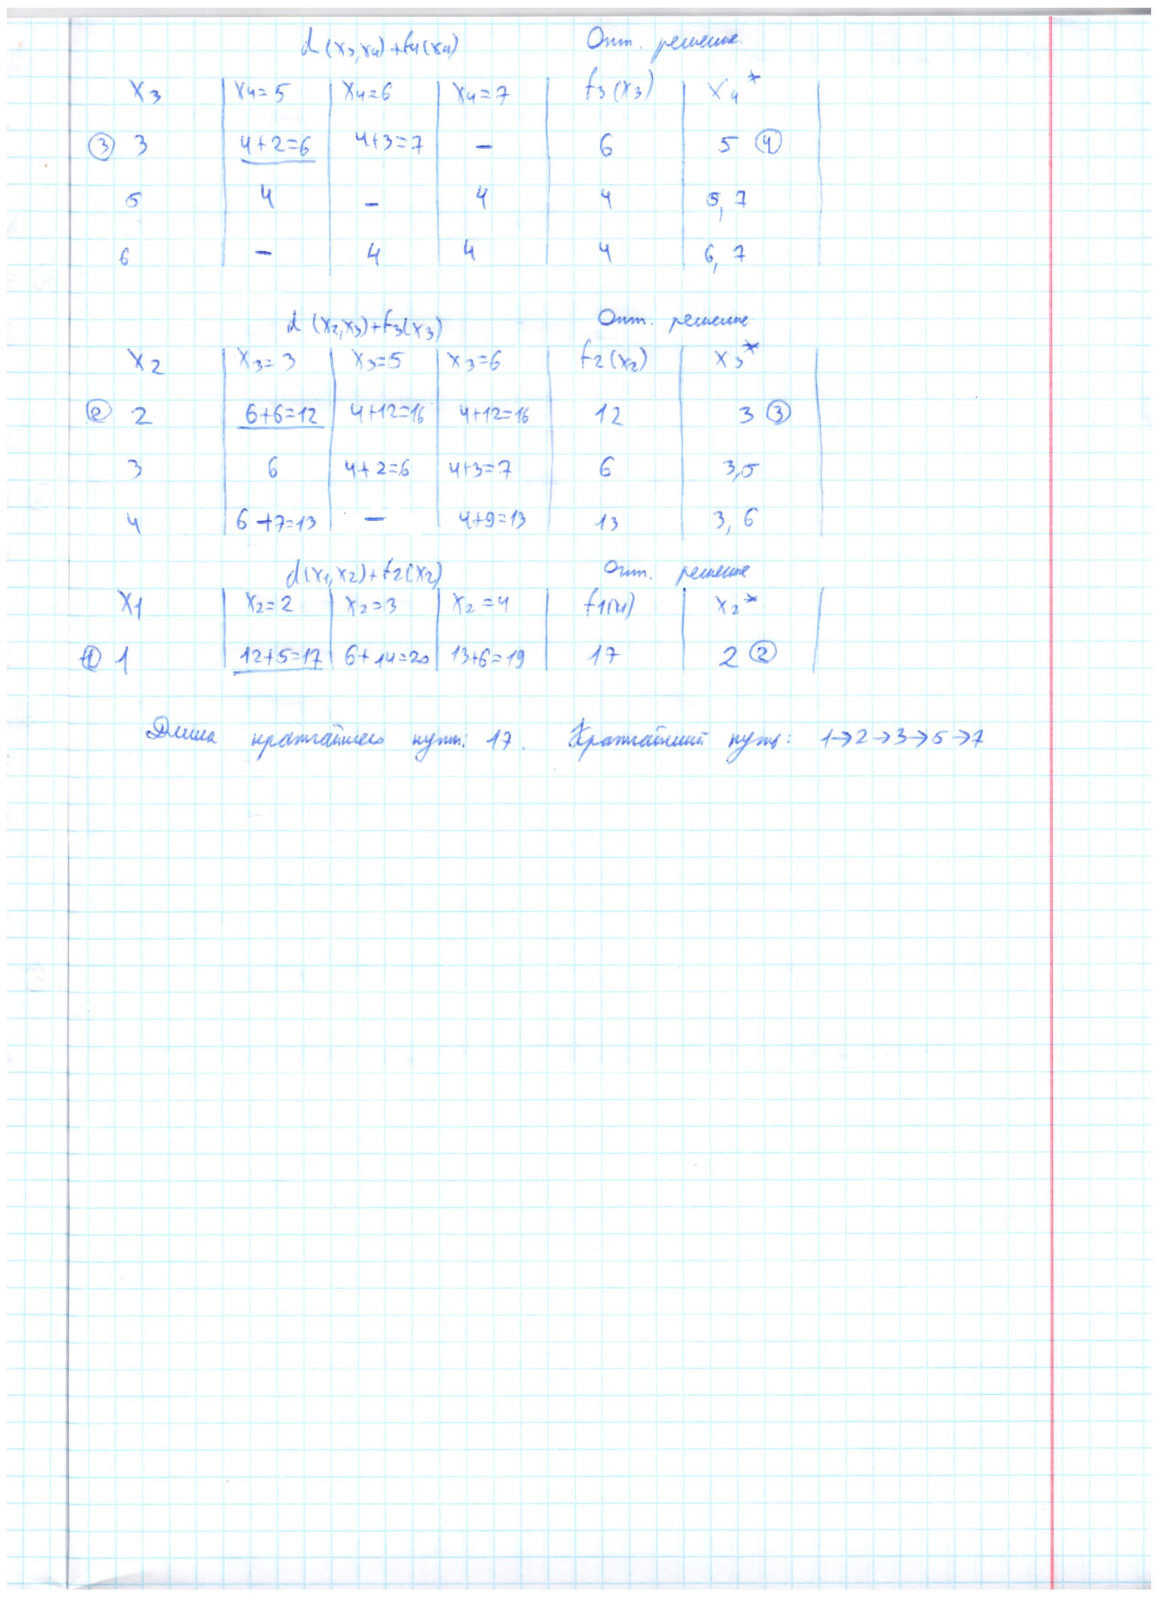 d(x₃,x₄)+f₄(x₄) Опт. решение.
x₃ x₄=5 x₄=6 x₄=7 f₃(x₃) x₄*
③ 3 4+2=6 4+3=7 – 6 5 ④
5 4 – 4 4 5, 7
6 – 4 4 4 6, 7
d(x₂,x₃)+f₃(x₃) Опт. решение
x₂ x₃=3 x₃=5 x₃=6 f₂(x₂) x₃*
② 2 6+6=12 4+12=16 4+12=16 12 3 ③
3 6 4+2=6 4+3=7 6 3,5
4 6+7=13 – 4+9=13 13 3, 6
d(x₁,x₂)+f₂(x₂) Опт. решение
x₁ x₂=2 x₂=3 x₂=4 f₁(x₁) x₂*
① 1 12+5=17 6+14=20 13+6=19 17 2 ②
Длина кратчайшего пути: 17. Кратчайший путь: 1→2→3→5→7